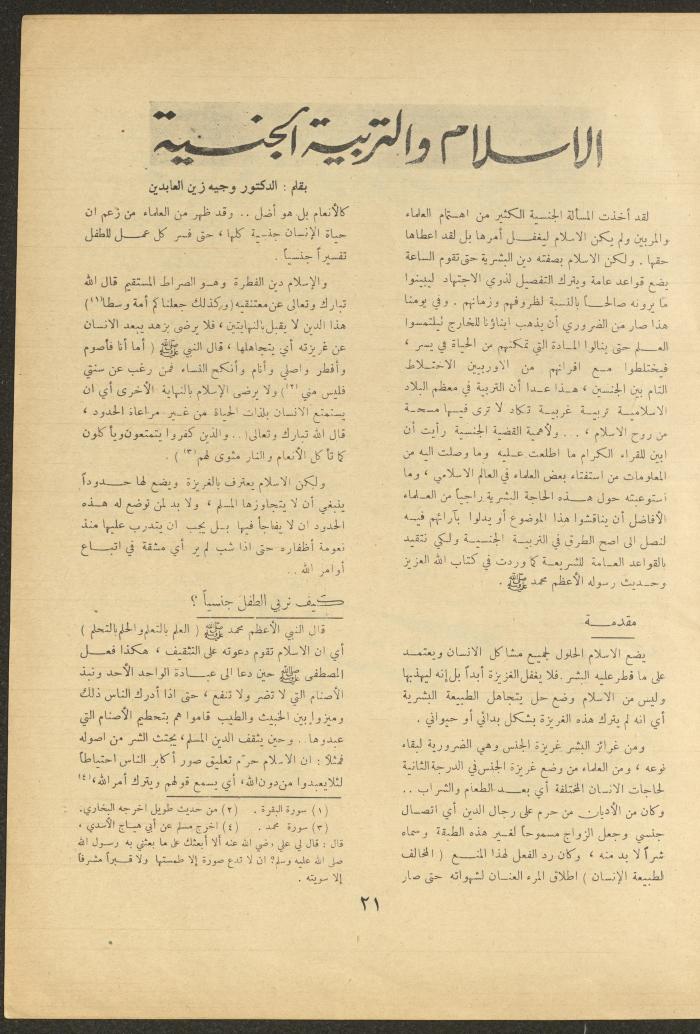 الاسلام والتربية الجنسية
بقلم : الدكتور وجيه زين العابدين
لقد أخذت المسألة الجنسية الكثير من اهتمام العلماء
والمربين ولم يكن الاسلام ليغفل أمرها بل لقد اعطاها
حقها . ولكن الاسلام بصفته دين البشرية حتى تقوم الساعة
يضع قواعد عامة ويترك التفصيل لذوي الاجتهاد ليبينوا
ما يرونه صالحاً بالنسبة لظروفهم وزمانهم . وفي يومنا
هذا صار من الضروري أن يذهب ابناؤنا للخارج ليلتمسوا
العلم حتى ينالوا المادة التي تمكنهم من الحياة في يسر ،
فيختلطوا مع اقرانهم من الاوربيين الاختلاط
التام بين الجنسين ، هذا عدا أن التربية في معظم البلاد
الاسلامية تربية غربية تكاد لا ترى فيها مسحة
من روح الاسلام ، .. ولأهمية القضية الجنسية رأيت أن
ابين للقراء الكرام ما اطلعت عليه وما وصلت اليه من
المعلومات من استفتاء بعض العلماء في العالم الاسلامي ، وما
استوعبته حول هذه الحاجة البشرية راجياً من العلماء
الأفاضل أن يناقشوا هذا الموضوع أو يدلوا بآرائهم فيه
لنصل الى اصح الطرق في التربية الجنسية ولكي نتقيد
بالقواعد العامة للشريعة كما وردت في كتاب الله العزيز
وحديث رسوله الأعظم محمد ﷺ .
مقدمة
يضع الاسلام الحلول لجميع مشاكل الانسان ويعتمد
على ما فطر عليه البشر . فلا يغفل الغريزة أبداً بل إنه ليهذبها
وليس من الاسلام وضع حل يتجاهل الطبيعة البشرية
أي انه لم يترك هذه الغريزة بشكل بدائي أو حيواني .
ومن غرائز البشر غريزة الجنس وهي الضرورية لبقاء
نوعه ، ومن العلماء من وضع غريزة الجنس في الدرجة الثانية
لحاجات الانسان المختلفة أي بعد الطعام والشراب ..
وكان من الأديان من حرم على رجال الدين أي اتصال
جنسي وجعل الزواج مسموحاً لغير هذه الطبقة وسماه
شراً لا بد منه ، وكان رد الفعل لهذا المنع ( المخالف
لطبيعة الإنسان ) اطلاق المرء العنان لشهواته حتى صار
كالأنعام بل هو أضل .. وقد ظهر من العلماء من زعم ان
حياة الإنسان جنسية كلها ، حتى فسر كل عمل للطفل
تفسيراً جنسياً .
والإسلام دين الفطرة وهو الصراط المستقيم قال الله
تبارك وتعالى عن معتنقيه (وكذلك جعلناكم أمة وسطا)(١)
هذا الدين لا يقبل بالنهايتين ، فلا يرضى بزهد يبعد الانسان
عن غريزته أي يتجاهلها ، قال النبي ﷺ ( أما أنا فأصوم
وأفطر واصلي وأنام وأنكح النساء فمن رغب عن سنتي
فليس مني (٢) ) ولا يرضى الإسلام بالنهاية الأخرى أي ان
يستمتع الانسان بلذات الحياة من غير مراعاة الحدود ،
قال الله تبارك وتعالى ( .. والذين كفروا يتمتعون ويأكلون
كما تأكل الأنعام والنار مثوى لهم (٣) ) .
ولكن الاسلام يعترف بالغريزة ويضع لها حدوداً
ينبغي أن لا يتجاوزها المسلم ، ولا بد لمن توضع له هذه
الحدود ان لا يفاجأ فيها بل يجب ان يتدرب عليها منذ
نعومة أظفاره حتى اذا شب لم ير أي مشقة في اتباع
أوامر الله ..
كيف نربي الطفل جنسياً ؟
قال النبي الأعظم محمد ﷺ ( العلم بالتعلم والحلم بالتحلم )
أي ان الاسلام تقوم دعوته على التثقيف ، هكذا فعل
المصطفى ﷺ حين دعا الى عبادة الواحد الأحد ونبذ
الأصنام التي لا تضر ولا تنفع ، حتى اذا أدرك الناس ذلك
وميزوا بين الخبيث والطيب قاموا هم بتحطيم الأصنام التي
عبدوها . وحين يثقف الدين المسلم ، يجتث الشر من اصوله
فمثلاً : ان الاسلام حرم تعليق صور أكابر الناس احتياطاً
لئلا يعبدوا من دون الله ، أي يسمع قولهم ويترك أمر الله ، (٤)
(١) سورة البقرة . (٢) من حديث طويل اخرجه البخاري .
(٣) سورة محمد . (٤) اخرج مسلم عن أبي هياج الأسدي ،
قال : قال لي علي رضي الله عنه ألا أبعثك على ما بعثني به رسول الله
صلى الله عليه وسلم ؟ ان لا تدع صورة إلا طمستها ولا قبراً مشرفاً
إلا سويته .
٢١